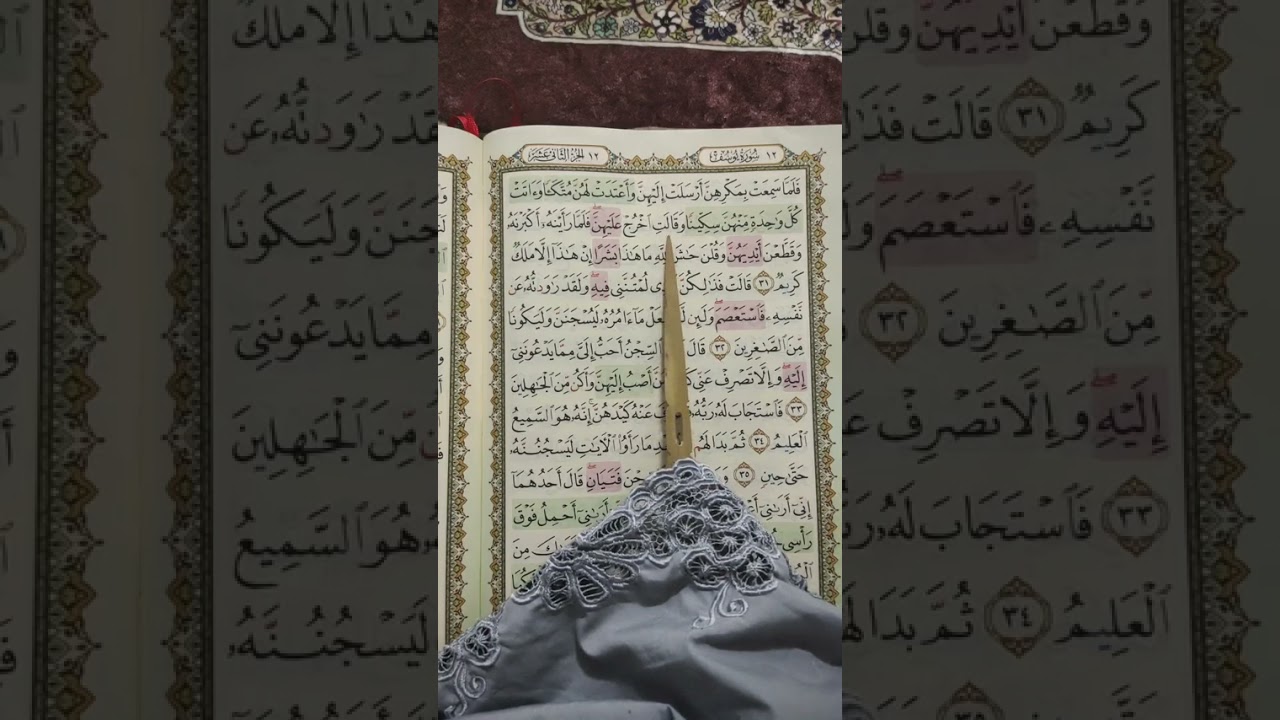 سُورَةُ يُوسُفَ ١٢
الجُزْءُ الثَّانِي عَشَرَ ١٢
فَلَمَّا سَمِعَتْ بِمَكْرِهِنَّ أَرْسَلَتْ إِلَيْهِنَّ وَأَعْتَدَتْ لَهُنَّ مُتَّكَـًٔا وَءَاتَتْ
كُلَّ وَٰحِدَةٍ مِّنْهُنَّ سِكِّينًا وَقَالَتِ ٱخْرُجْ عَلَيْهِنَّ فَلَمَّا رَأَيْنَهُۥٓ أَكْبَرْنَهُۥ
وَقَطَّعْنَ أَيْدِيَهُنَّ وَقُلْنَ حَٰشَ لِلَّهِ مَا هَٰذَا بَشَرًا إِنْ هَٰذَآ إِلَّا مَلَكٌ
كَرِيمٌ ٣١ قَالَتْ فَذَٰلِكُنَّ لُمْتُنَّنِى فِيهِ وَلَقَدْ رَٰوَدتُّهُۥ عَن
نَّفْسِهِۦ فَٱسْتَعْصَمَ وَلَئِن مَآ ءَامُرُهُۥ لَيُسْجَنَنَّ وَلَيَكُونًا
مِّنَ ٱلصَّٰغِرِينَ ٣٢ قَالَ ٱلسِّجْنُ أَحَبُّ إِلَىَّ مِمَّا يَدْعُونَنِىٓ
إِلَيْهِ وَإِلَّا تَصْرِفْ عَنِّى أَصْبُ إِلَيْهِنَّ وَأَكُن مِّنَ ٱلْجَٰهِلِينَ
٣٣ فَٱسْتَجَابَ لَهُۥ رَبُّهُۥ عَنْهُ كَيْدَهُنَّ إِنَّهُۥ هُوَ ٱلسَّمِيعُ
ٱلْعَلِيمُ ٣٤ ثُمَّ بَدَا لَهُم مَا رَأَوُا۟ ٱلْـَٔايَٰتِ لَيَسْجُنُنَّهُۥ
حَتَّىٰ حِينٍ ٣٥ فَتَيَانِ قَالَ أَحَدُهُمَآ
إِنِّىٓ أَرَىٰنِىٓ أَرَىٰنِىٓ أَحْمِلُ فَوْقَ
رَأْسِى
مِنَ